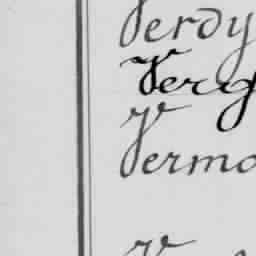 Verdy
Verg
Vermo
V